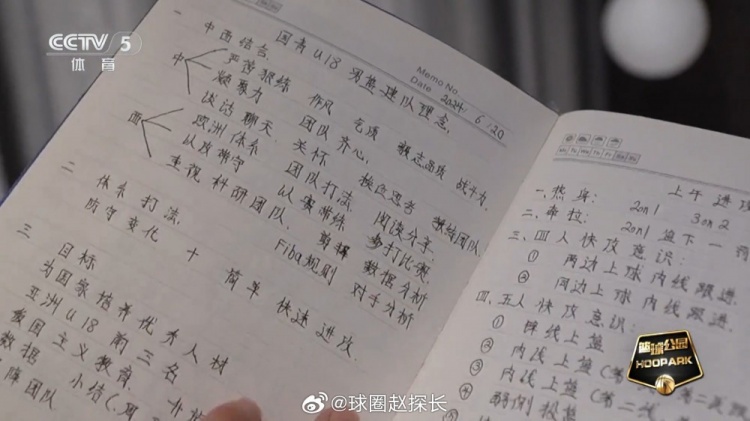 CCTV 5
体育
Memo No.
Date 2024 / 6 / 20
国青 U18 男篮建队理念.
一 中西结合.
中
严苦狠练 作风 气质 意志品质 战斗力.
凝聚力 团队齐心.
谈话 聊天 关怀
西
欧洲体系 团队打法. 独立思考 独练团队.
以攻带守 以赛带练 阅读分享.
重视科研团队. 剪辑 多打比赛
数据分析
二 体系打法. Fiba规则 对手分析
防守变化 + 简单 快速进攻.
三 目标
为国家培养优秀人材
亚洲U18 前三名
爱国主义教育.
数据 小结
阵团队
上午进攻
一、热身:
二、牵拉: 2on1 3on2
2on1 篮下一
三、四人快攻意识:
① 两边上球内线跟进.
② 同边上球内线跟进.
四、五人快攻意识:
① 阵线上篮
② 内线上篮 (第一
③ 内线上篮 (第二
④ 弱侧 (第二线
篮球公园
HOOPARK
@球圈赵探长